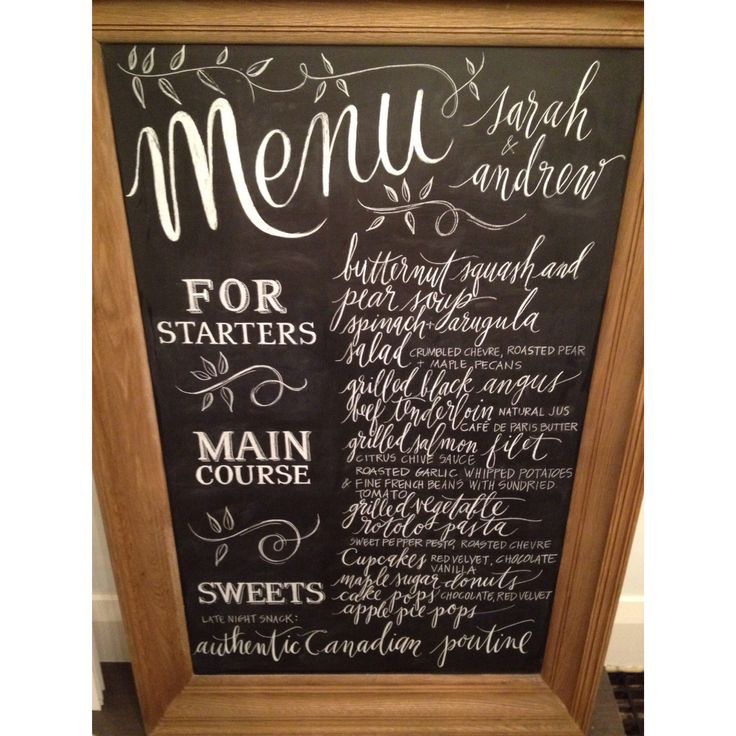 Menu
sarah
&
andrew
FOR
STARTERS
butternut squash and
pear soup
spinach + arugula
salad CRUMBLED CHEVRE, ROASTED PEAR
+ MAPLE PECANS
MAIN
COURSE
grilled black angus
beef tenderloin NATURAL JUS
CAFÉ DE PARIS BUTTER
grilled salmon filet
CITRUS CHIVE SAUCE
ROASTED GARLIC WHIPPED POTATOES
& FINE FRENCH BEANS WITH SUNDRIED
TOMATO
grilled vegetable
rotolo pasta
SWEET PEPPER PESTO, ROASTED CHEVRE
SWEETS
Cupcakes RED VELVET, CHOCOLATE
VANILLA
maple sugar donuts
cake pops CHOCOLATE, RED VELVET
apple pie pops
LATE NIGHT SNACK:
authentic Canadian poutine